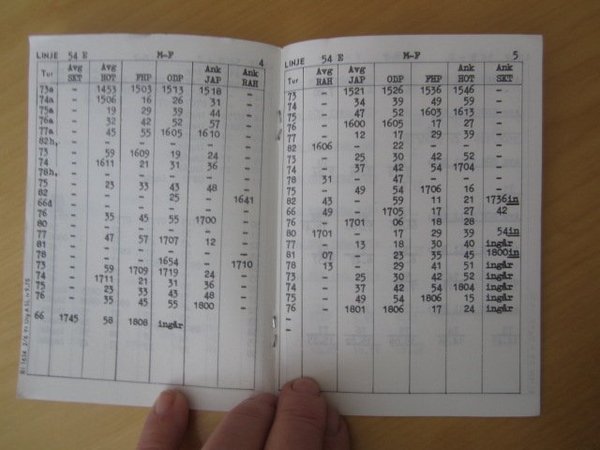 LINJE 54 E M-F 4
Tur Avg SKT Avg HOT FHP ODP Ank JAP Ank RAH
73a - 1453 1503 1513 1518 -
74a - 1506 16 26 31 -
75a - 19 29 39 44 -
76a - 32 42 52 57 -
77a - 45 55 1605 1610 -
82h, - - - - - -
73 - 59 1609 19 24 -
74 - 1611 21 31 36 -
78h, - - - - - -
75 - 23 33 43 48 -
82 - - - 25 - 1641
66d - - - - - -
76 - 35 45 55 1700 -
80 - - - - - -
77 - 47 57 1707 12 -
81 - - - - - -
78 - - - 1654 - 1710
73 - 59 1709 1719 24 -
74 - 1711 21 31 36 -
75 - 23 33 43 48 -
76 - 35 45 55 1800 -
66 1745 58 1808 ingår
LINJE 54 E M-F 5
Tur Avg RAH Avg JAP ODP FHP Ank HOT Ank SKT
73 - 1521 1526 1536 1546 -
74 - 34 39 49 59 -
75 - 47 52 1603 1613 -
76 - 1600 1605 17 27 -
77 - 12 17 29 39 -
82 1606 - 22 - - -
73 - 25 30 42 52 -
74 - 37 42 54 1704 -
78 31 - 47 - - -
75 - 49 54 1706 16 -
82 43 - 59 11 21 1736in
66 49 - 1705 17 27 42
76 - 1701 06 18 28 -
80 1701 - 17 29 39 54in
77 - 13 18 30 40 ingår
81 07 - 23 35 45 1800in
78 13 - 29 41 51 ingår
73 - 25 30 42 52 ingår
74 - 37 42 54 1804 ingår
75 - 49 54 1806 15 ingår
76 - 1801 1806 17 24 ingår
-
-